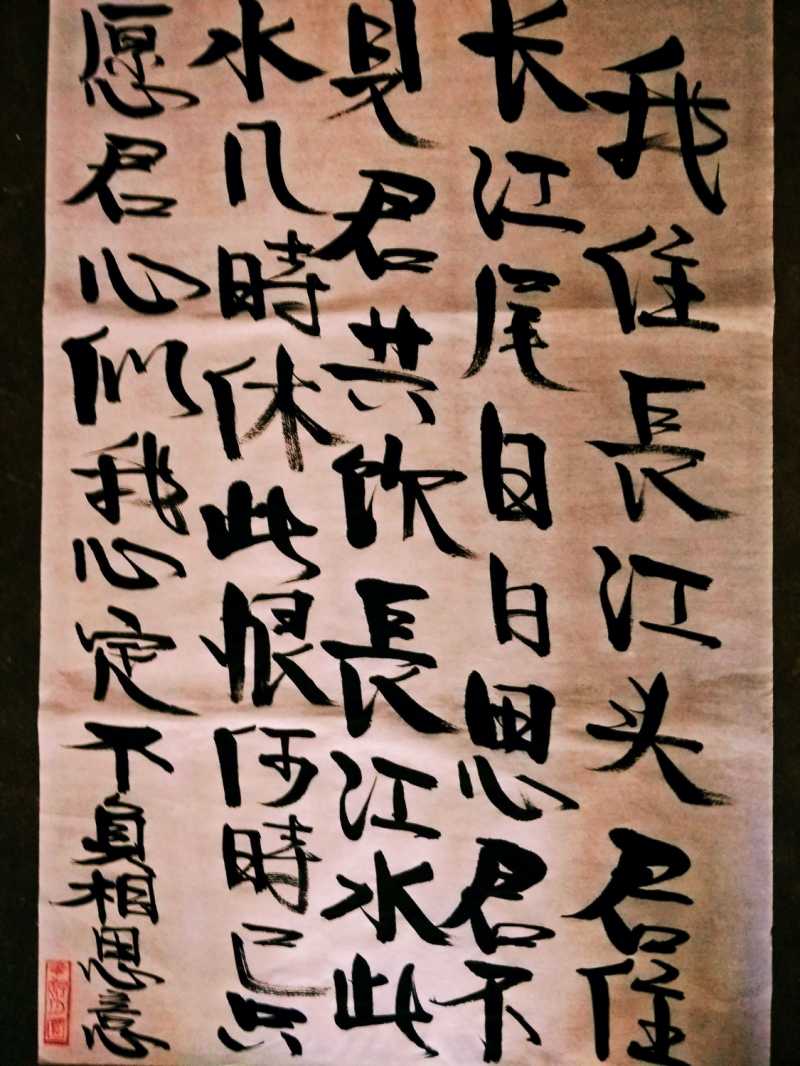 我住長江头君住
长江尾日日思君不
見君共饮長江水此
水几時休此恨何時已只
愿君心似我心定不負相思意